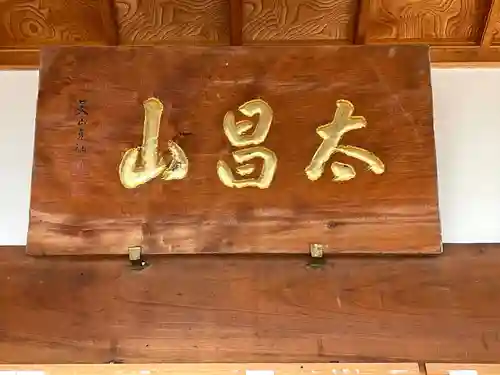 太昌山